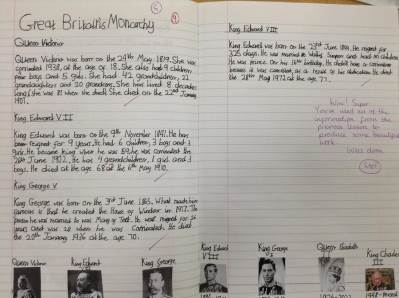 Great Britain's Monarchy
Queen Victoria
Queen Victoria was born on the 24th May 1819. She was
coronated 1838, at the age of 18. She also had 9 children,
four boys and 5 girls. She had 42 grandchildren, 22
grandaughters and 20 grandsons. She has lived 8 decades
long (she was 81 when she died). She died on the 22nd January
1901.
King Edward VII
King Edward was born on the 9th November 1841. He has
been reigned for 9 years. He had 6 children, 3 boys and 3
girls. He became king when he was 59, he was coronated the
1902. He has 9 grandchildren, 1 girl and 3
boys. He died at the age 68 at the 6th May 1910.
King George V
King George was born on the 3rd June 1865. What made him
famous is that he created the House of Windsor in 1917. The
person he was married to was Mary of Teck. He was reigned for 25
years and was when he was Coronated. He died
the 20th January 1936 at the age 70.
Queen Victoria
King Edward
King George
King Edward VIII
King Edward was born on the 23rd June 1894. He reigned for
325 days. He was married to Wallis Simpson and had no children.
He was prince. On his 16th birthday. He didn't have a coronation
because it was cancelled, as a result of his abdication. He died
the 28th May 1972 at the age 77.
Wow! Super
You've used all of the
information from the
previous lesson to
produce some beautiful
work.
Well done
King Edward
VIII
King George
VI
Queen Elizabeth
King Charles
III
1948 - Present